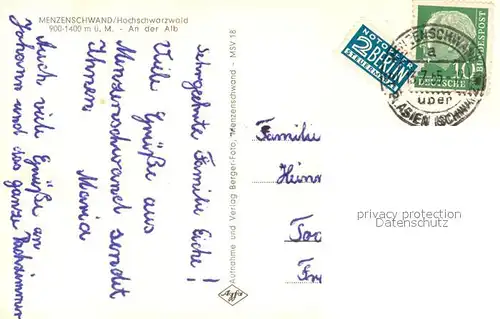 MENZENSCHWAND/Hochschwarzwald
900-1400 m ü. M. - An der Alb
Sehrgeehrte Familie Eiche!
Viele Grüße aus
Menzenschwand sendet
Ihnen
Maria
Auch viele Grüße an
Johann und das ganze
Aufnahme und Verlag Berger-Foto, Menzenschwand - MSV 18
Agfa
NOTOPFER
2 BERLIN
STEUERMARKE
DEUTSCHE
BUNDESPOST
10
MENZENSCHWAND
a
über
ST. BLASIEN (SCHWARZW)
Familie
Heinr
privacy protection
Datenschutz